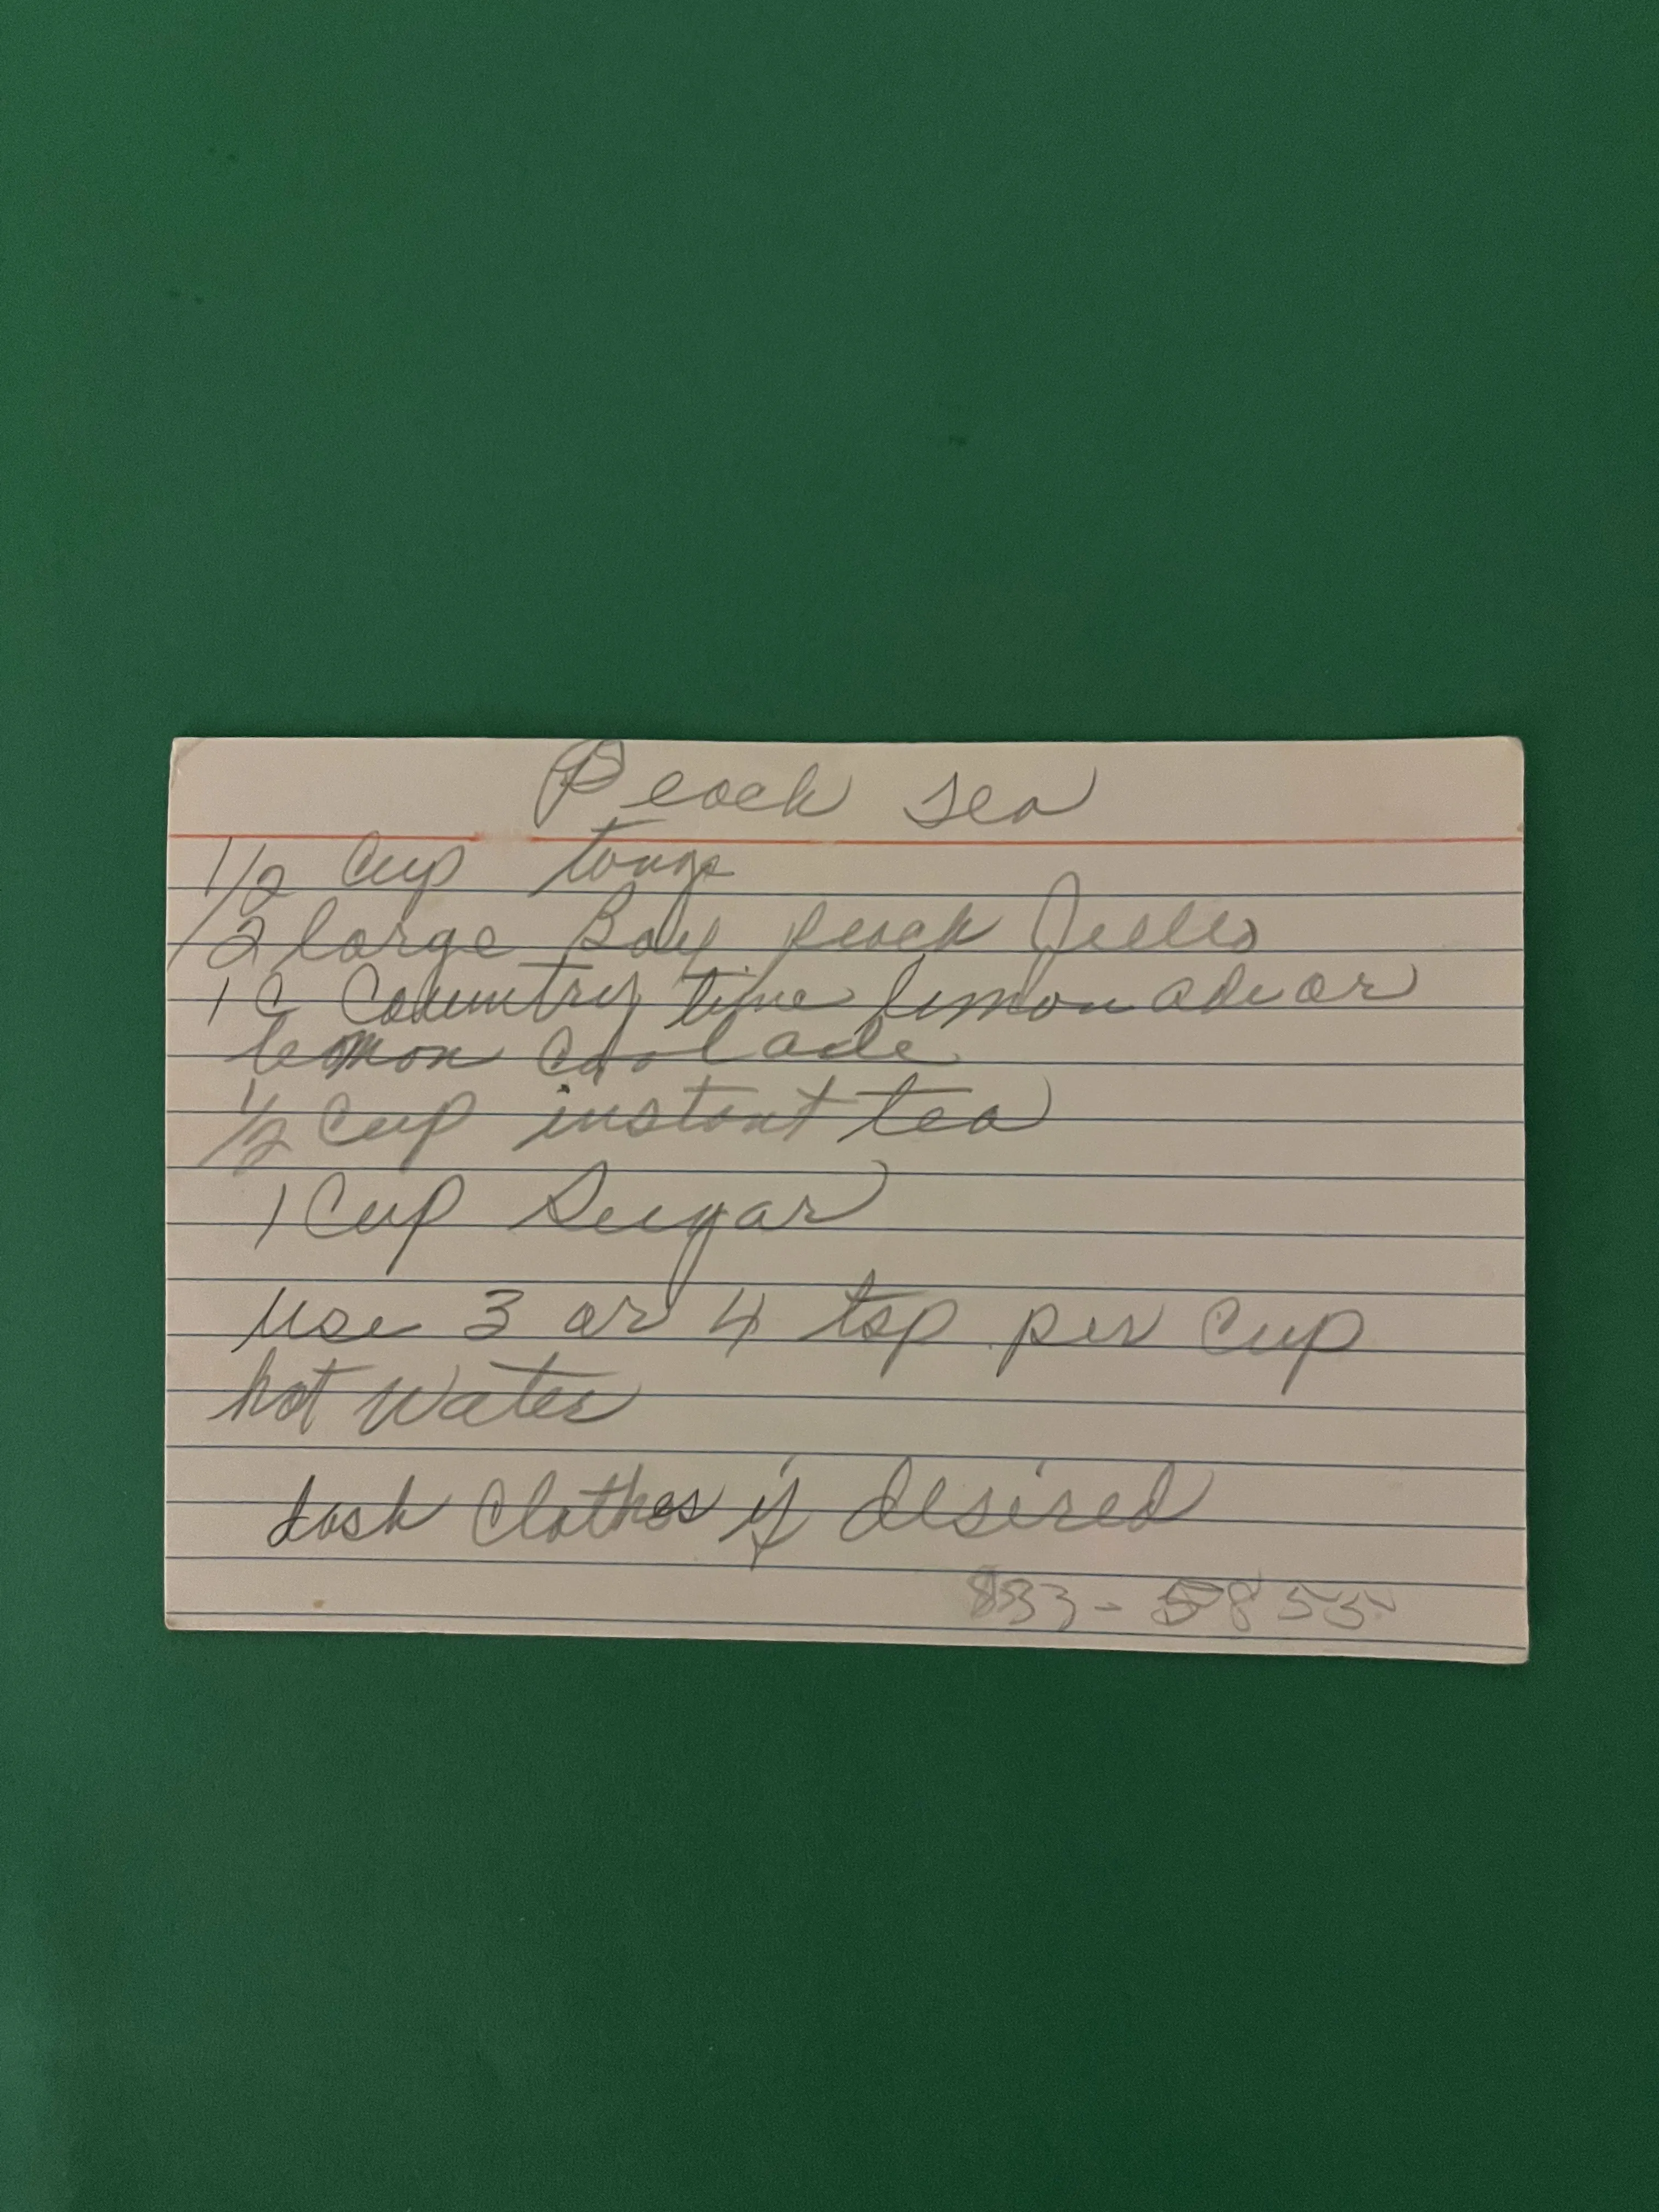 Peach Tea
1/2 cup tang
2 large Box peach Jello
1 C Country time lemonade or
lemon coolade
1/2 cup instant tea
1 Cup Sugar
use 3 or 4 tsp per cup
hot water
dash Clothes if desired
833-5855